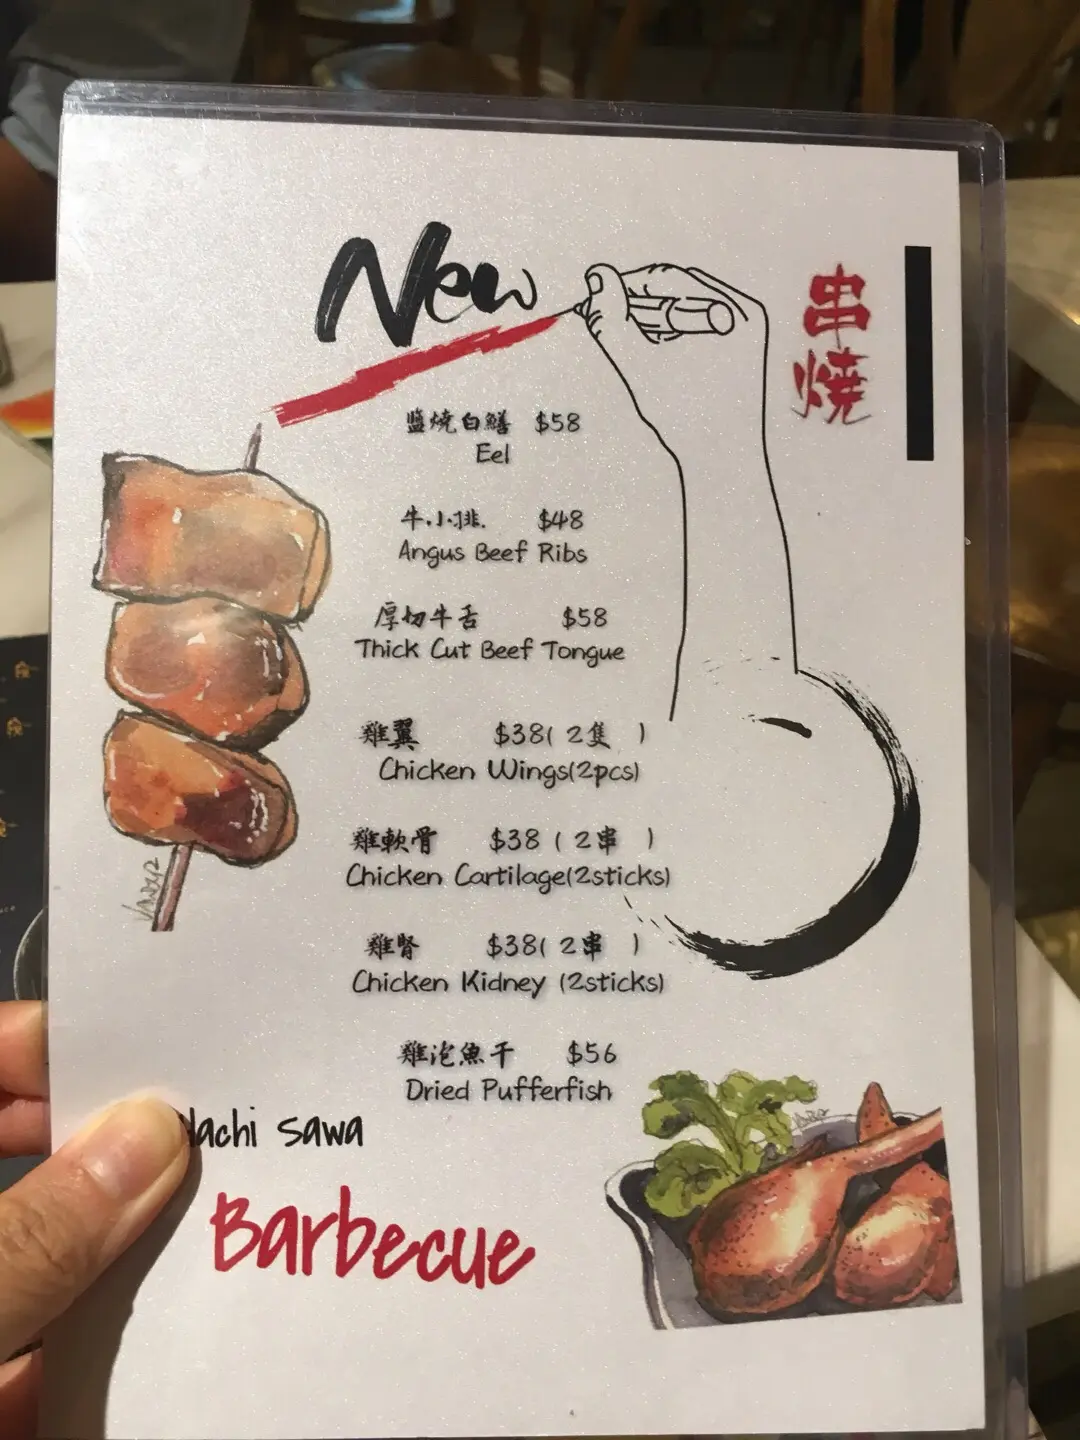 New
串
燒
鹽燒白鱔 $58
Eel
牛小排 $48
Angus Beef Ribs
厚切牛舌 $58
Thick Cut Beef Tongue
雞翼 $38( 2隻 )
Chicken Wings(2pcs)
雞軟骨 $38 ( 2串 )
Chicken Cartilage(2sticks)
雞腎 $38( 2串 )
Chicken Kidney (2sticks)
雞泡魚干 $56
Dried Pufferfish
achi sawa
Barbecue